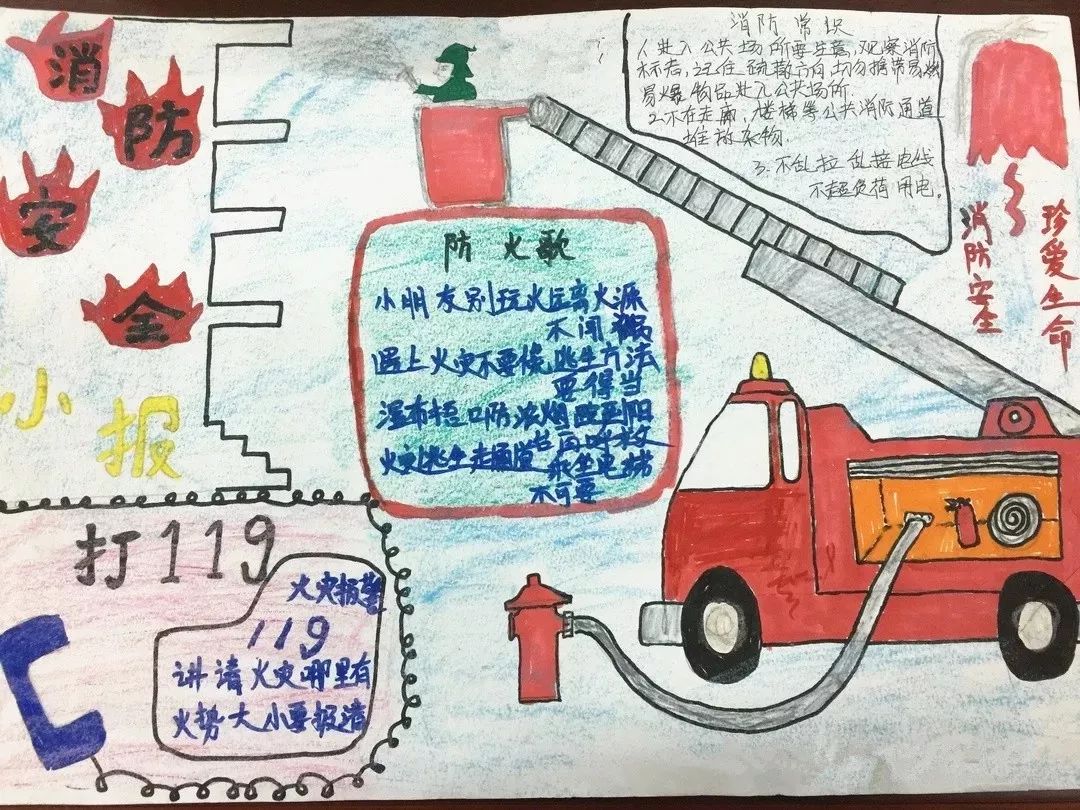 消防安全
小报
消防常识
1、进入公共场所要注意,观察消防
标志,记住疏散方向,切勿携带易燃
易爆物品进入公共场所
2、不在走廊,楼梯等公共消防通道
堆放杂物.
3、不乱拉乱接电线
不超负荷用电.
珍爱生命
消防安全
防火歌
小朋友别玩火远离火源
不闯祸
遇上火灾不要慌逃生方法
要得当
湿布捂口防浓烟
阳
台再呼救
火灾逃生走通道
乘坐电梯
不可要
打119
火灾报警
119
讲请火灾哪里有
火势大小要报清